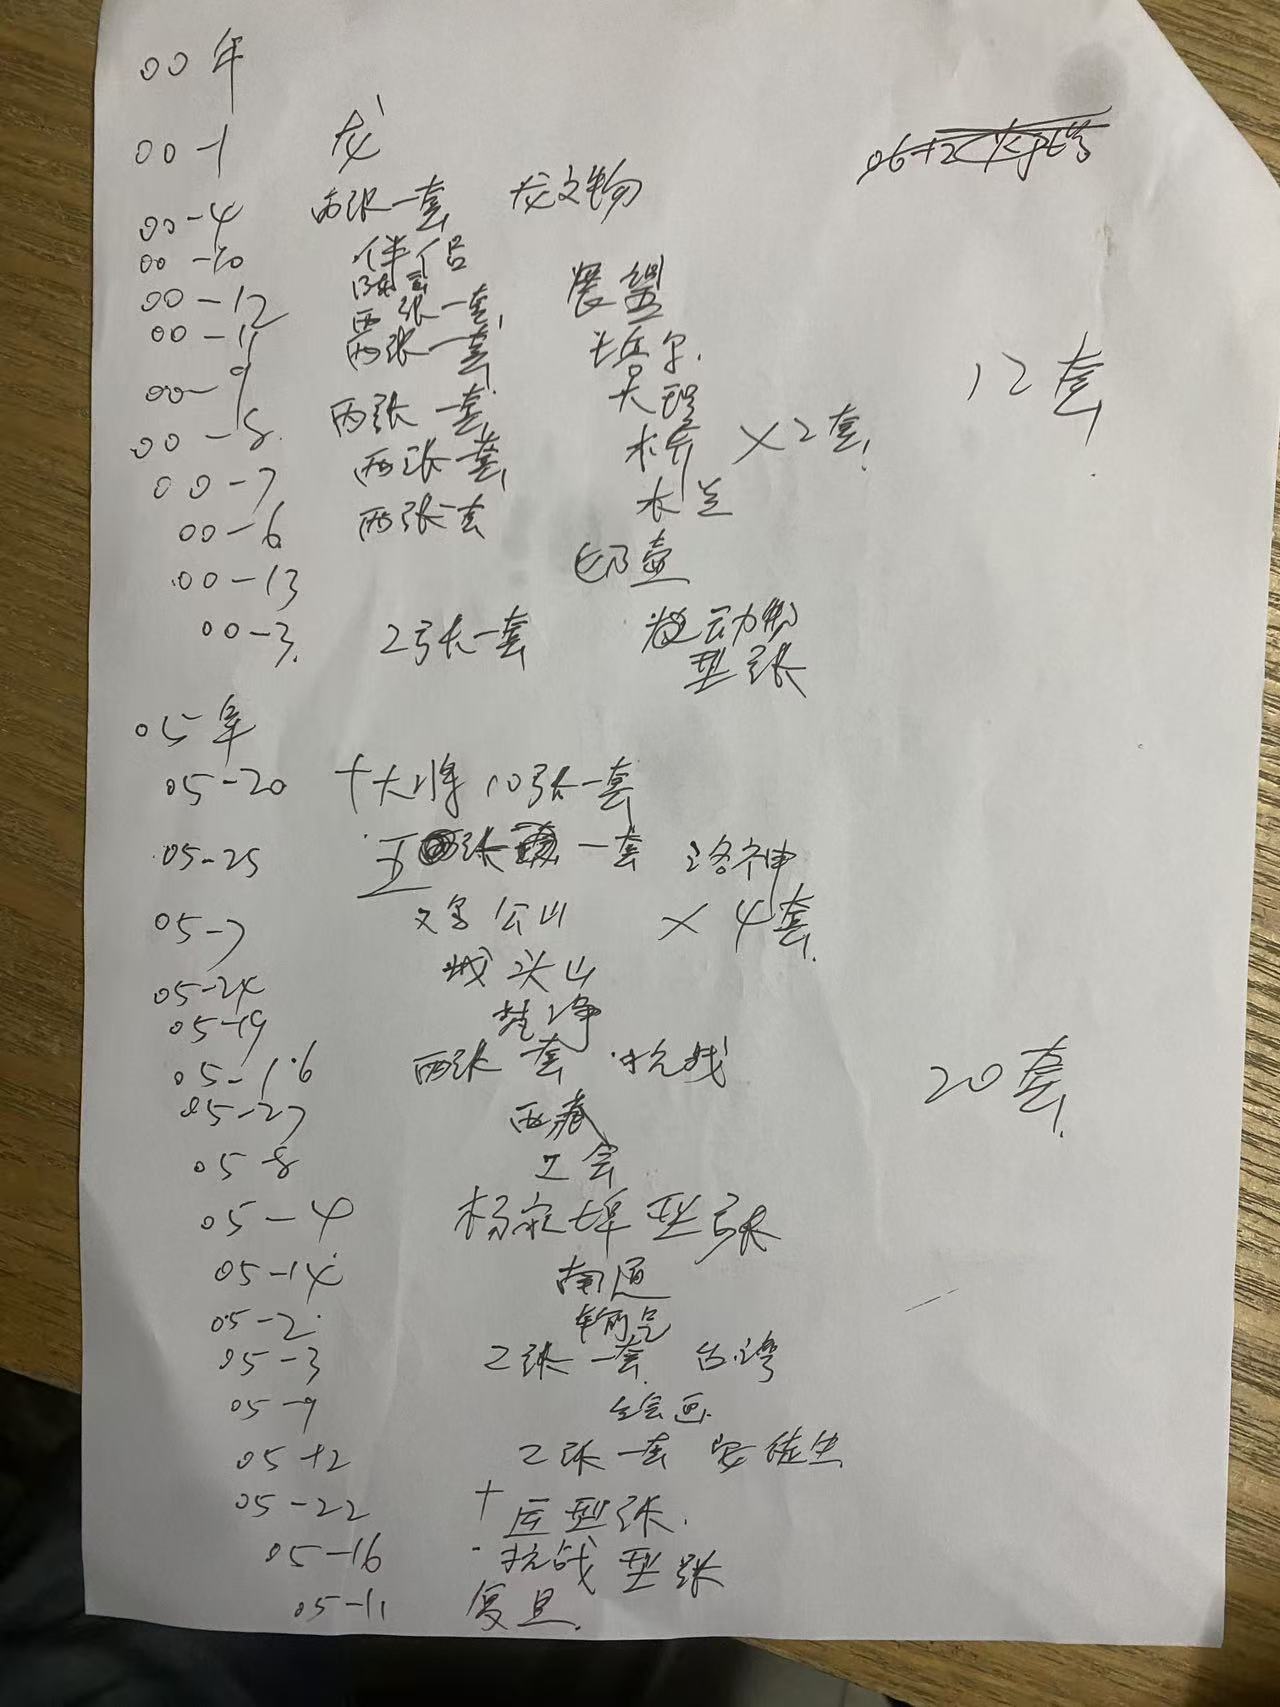 00年
00-1 龙
00-4 两张一套 龙文物
00-20 伴侣
陈云
00-12 两张一套 展望
00-11 两张一套 卡塔尔
00-9 大理
00-8 两张一套 木桥 ×2套
00-7 两张一套 木兰
00-6 两张一套
00-13 壶
00-3 2张一套 动物
型张
12套
05年
05-20 十大将 10张一套
05-25 五张一套 洛神
05-7 公山 ×4套
05-24 城头山
05-19 梵净
05-16 两张一套 抗战
05-27 西藏
05-8 工会
05-4 杨家埠型张
05-14 南通
05-2
05-3 2张一套 台湾
05-9 绘画
05-12 2张一套 安徒生
05-22 +运型张
05-16 抗战型张
05-11 复旦
20套